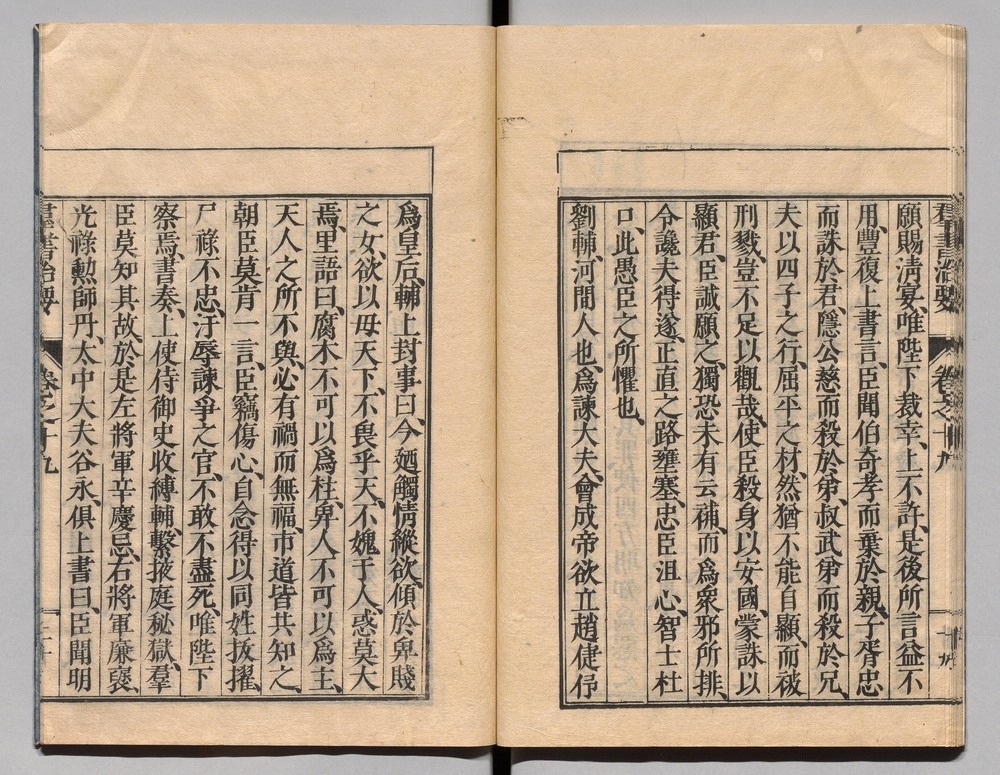 羣書治要 卷之十九 十九
願賜淸宴、唯陛下裁幸、上不許、是後所言益不
用、豐復上書言、臣聞伯奇孝而棄於親、子胥忠
而誅於君、隱公慈而殺於弟、叔武弟而殺於兄、
夫以四子之行、屈平之材、然猶不能自顯、而被
刑戮、豈不足以觀哉、使臣殺身以安國、蒙誅以
顯君、臣誠願之、獨恐未有云補、而爲衆邪所排、
令讒夫得遂、正直之路壅塞、忠臣沮心、智士杜
口、此愚臣之所懼也、
劉輔、河閒人也、爲諫大夫、會成帝欲立趙倢伃
爲皇后、輔上封事曰、今廼觸情縱欲、傾於卑賤
之女、欲以母天下、不畏乎天、不媿于人、惑莫大
焉、里語曰、腐木不可以爲柱、卑人不可以爲主、
天人之所不與、必有禍而無福、市道皆共知之、
朝臣莫肯一言、臣竊傷心、自念得以同姓拔擢、
尸祿不忠、汙辱諫爭之官、不敢不盡死、唯陛下
察焉、書奏、上使侍御史收縛輔、繫掖庭秘獄、羣
臣莫知其故、於是左將軍辛慶忌、右將軍廉褒、
光祿勲師丹、太中大夫谷永、俱上書曰、臣聞明
羣書治要 卷之十九